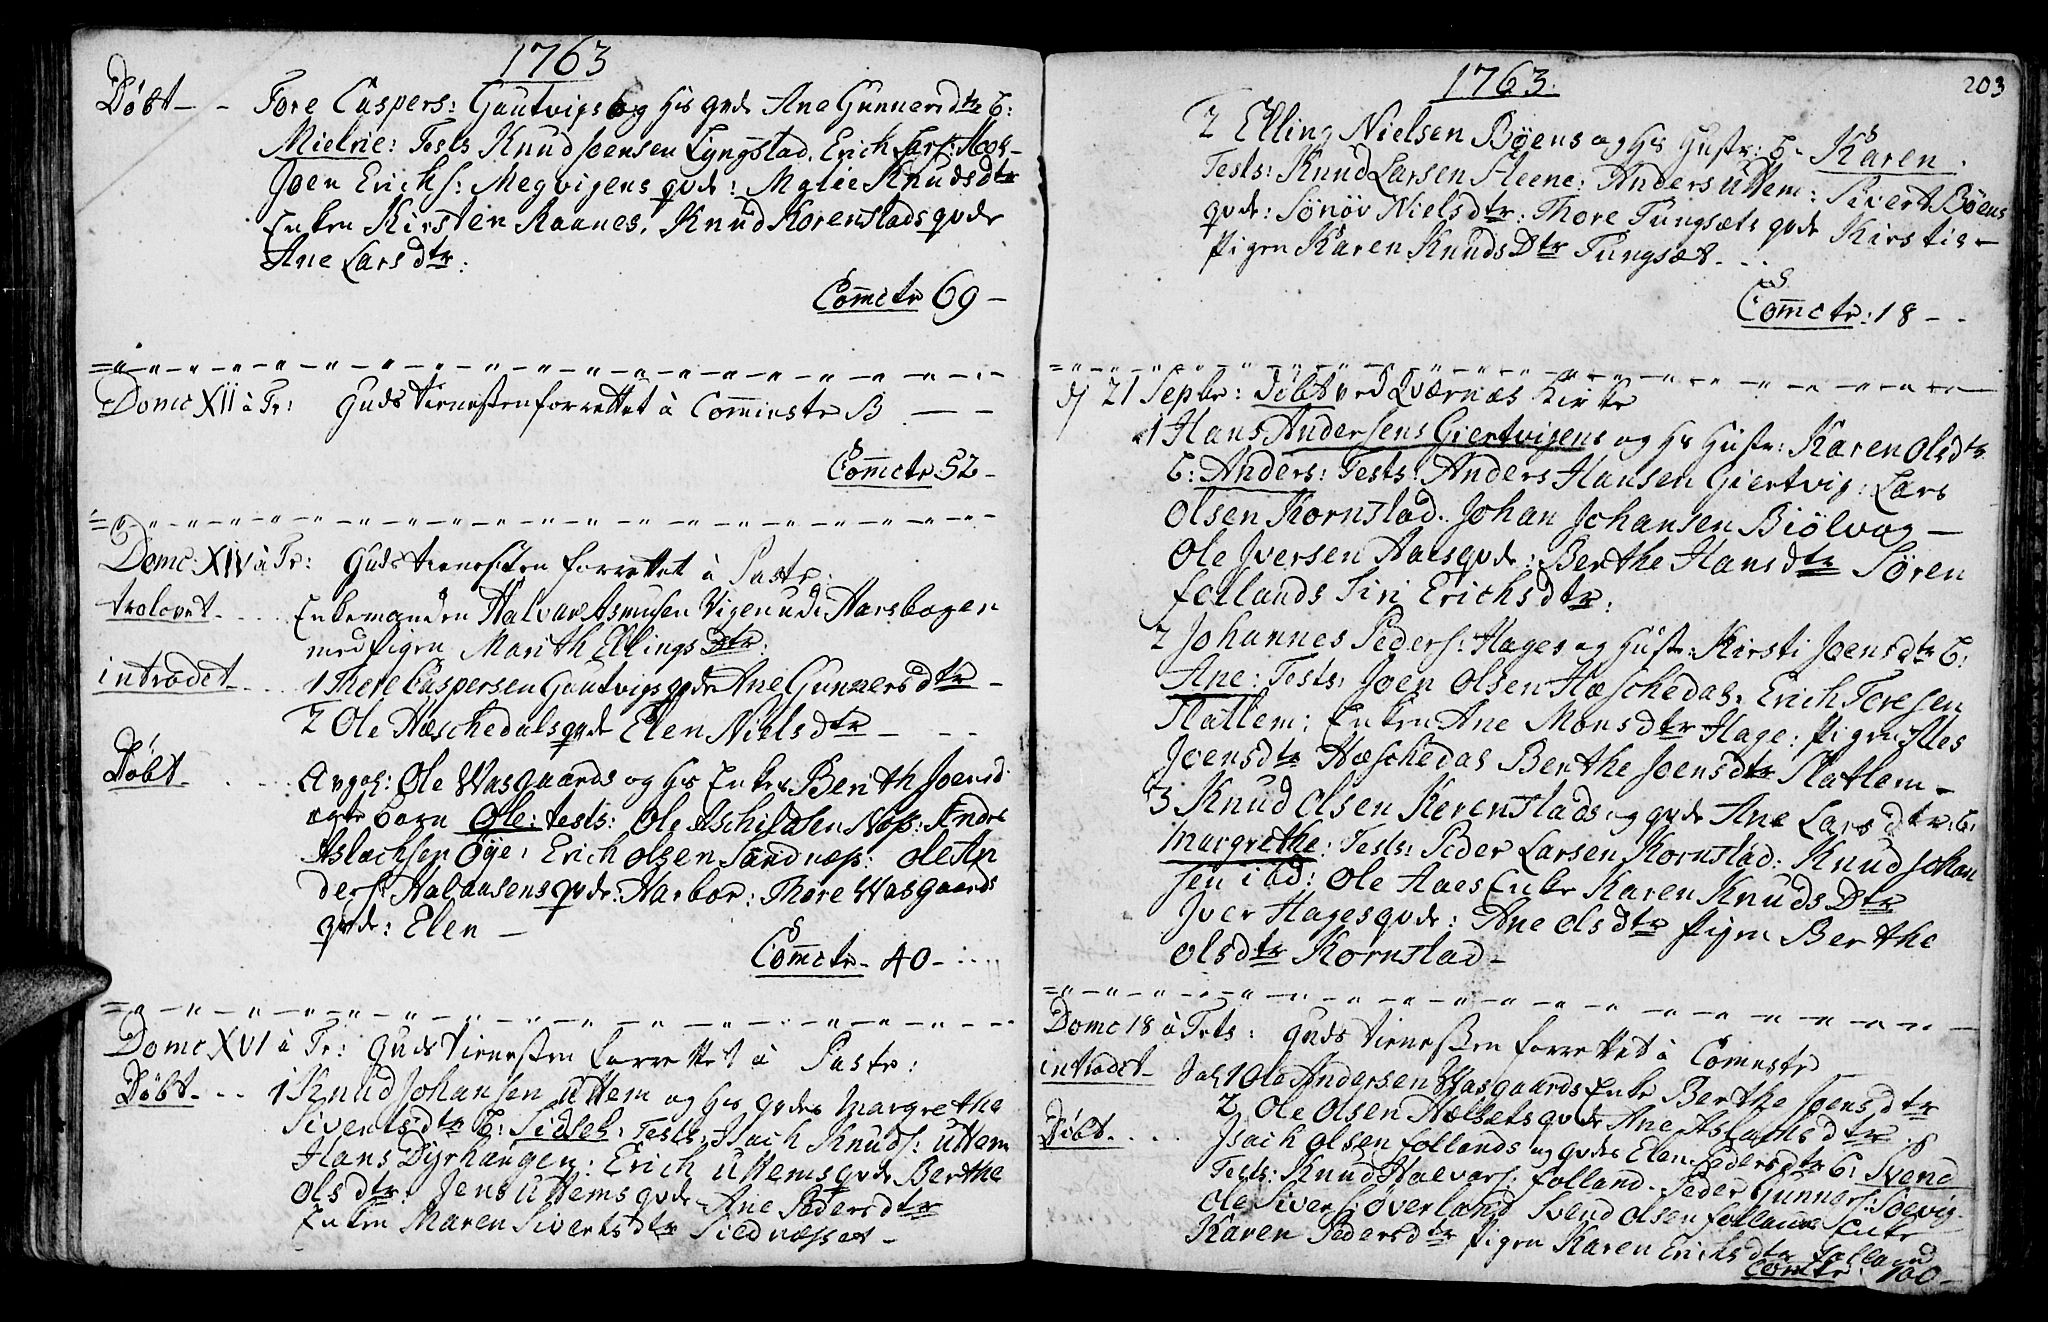 1763
Døbt - - Tore Caspers: Gautvigs og hs qvde Ane Gunnersdtr b:
Mielrie: Tests Knud Joensen Lyngstad, Erich Lars: Moe-
Joen Erichs: Megvigens qvde: Malie Knudsdtr
Enken Kirsten Raanes, Knud Korenstads qvde
Ane Larsdtr:
Com̄ctr 69 -
Domc XII à Tr: Guds tienesten forrettet à Com̄instr B - -
Com̄ctr 52 -
Domc: XIV à Tr: Guds tienesten forrettet à Pastr:
trolovet - . . . Enkemanden Halvar Asmusen Vigen udi Harsbogen
med Pigen Marith Ellings Dtr:
introdct - . . . 1 Thore Caspersen Gautvigs qvde Ane Gunnersdtr -
2 Ole Hæschedals qvde Elen Nielsdtr - - -
Døbt - . . . Avgol: Ole Wasgaards og hs Enke Berith Joensd:
ægte barn Ole: tests: Ole Aschildsen Næss: Endre
Aslachsen Øye: Erich Olsen Sandnæss: Ole An
ders: Halaasens qvde: Harbor: Thore Wasgaards
qvde: Elen -
Com̄ctr - 40 -
Domc XVI à Tr: Guds tienesten forrettet à Pastr:
Døbt - . . . 1 Knud Johansen Uttem og hs qvdes Margrethe
Sivertsdtr b: Sidsel: Tests: Isach Knuds: Uttem
Hans Dyrhaugen: Erich Uttems qvde Berthe
Olsdtr. Jens Uttems qvde Ane Pedersdtr
Enken Maren Sivertsdtr Sildnæsset -
1763. 203
2 Elling Nielsen Bøens og hs Hustr: b- Karen
Tests: Knud Larsen Steene: Anders Uttem: Sivert Bøens
qvde: Sønøv Nielsdtr: Thore Tungsæts qvde Kirstie -
Pigen Karen Knuds Dtr Tungsæt - . .
Com̄ctr: 18 - -
Dj 21 Sepbr: døbt ved Qværnæs Kirke
1 Hans Andersens Giertvigens og hs Hustr: Karen Olsdtr
b: Anders: Tests: Anders Hansen Giertvig: Lars
Olsen Kornstad. Johan Johansen Biølvog -
Ole Iversen Aaes qvde: Berthe Hansdtr Søren
follands Siri Erichsdtr:
2 Johannes Peders: Hages og Hustr: Kirsti Joensdtr b:
Ane: Tests: Joen Olsen Hæschedal, Erich Toresen
Slatlem: Enken Ane Monsdtr Hage: Pigen Mes
Joensdtr Hæschedal Berthe Joensdtr Slatlem -
3 Knud Olsen Kerenstads og qvde Ane Larsdtr: b:
Margrethe: Tests: Peder Larsen Kornstad: Knud Johan
sen ibd: Ole Aaes Enke Karen Knuds Dtr
Iver Hages qvde: Ane Olsdtr Pigen Berthe
Olsdtr Kornstad -
Domc 18 à Trts: Guds tienesten forrettet à Com̄instr
introdct - Sal 1 Ole Andersen Wasgaards Enke Berthe Joensdtr
2 Ole Olsen Hælsets qvde Ane Aslachsdtr
Døbt - . . . Isach Olsen follands og qvdes Elen Pedersdtr b: Svend
Tests: Knud Halvors: folland. Peder Gunners: Soevig
Ole Sivers: Øverland Svend Olsen follands Enke
Karen Pedersdtr Pigen Karen Erichsdtr folland
Com̄ctr: 100 -